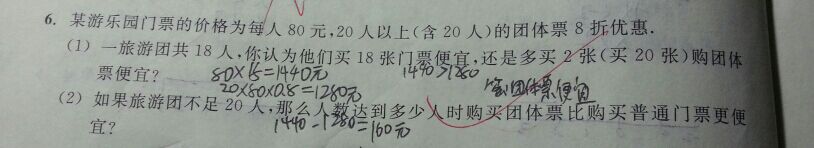 6. 某游乐园门票的价格为每人80元,20人以上(含20人)的团体票8折优惠.
(1) 一旅游团共18人,你认为他们买18张门票便宜,还是多买2张(买20张)购团体
票便宜?
80×18=1440元
1440>1280
20×80×0.8=1280元
买团体票便宜
(2) 如果旅游团不足20人,那么人数达到多少人时购买团体票比购买普通门票更便
宜?
1440-1280=160元